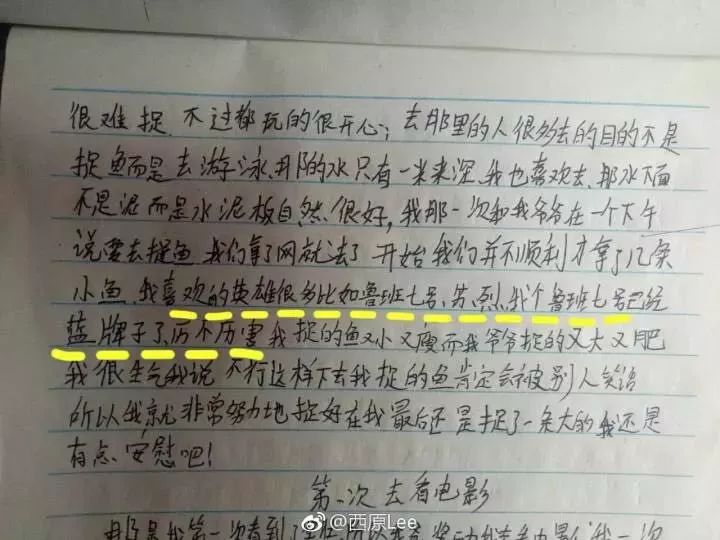 很难捉.不过都玩的很开心;去那里的人很多去的目的不是
捉鱼而是去游泳.那的水只有一米来深.我也喜欢去.那水下面
不是泥而是水泥板自然很好,我那一次和我爷爷在一个下午
说要去捉鱼.我们拿了网就去了.开始我们并不顺利才拿了几条
小鱼.我喜欢的英雄很多比如鲁班七号.苏.烈.我个鲁班七号已经
蓝牌子了.厉不厉害我捉的鱼又小又瘦而我爷爷捉的又大又肥
我很生气我说不行这样下去我捉的鱼肯定会被别人笑话
所以我就非常努力地捉好在我最后还是捉了一条大的我还是
有点安慰吧!
第一次去看电影
那是我第一次看到
@西原Lee